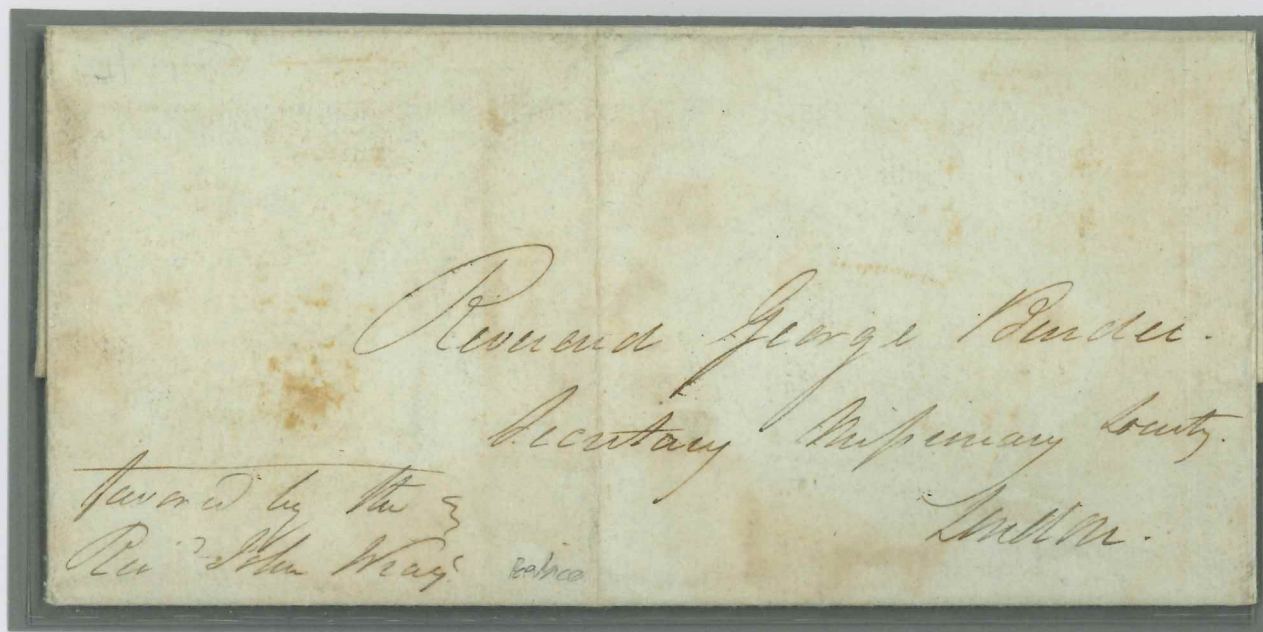 Reverend George Burder.
Secretary Missionary Society.
London.
favored by the
Revd John Wray
Berbice